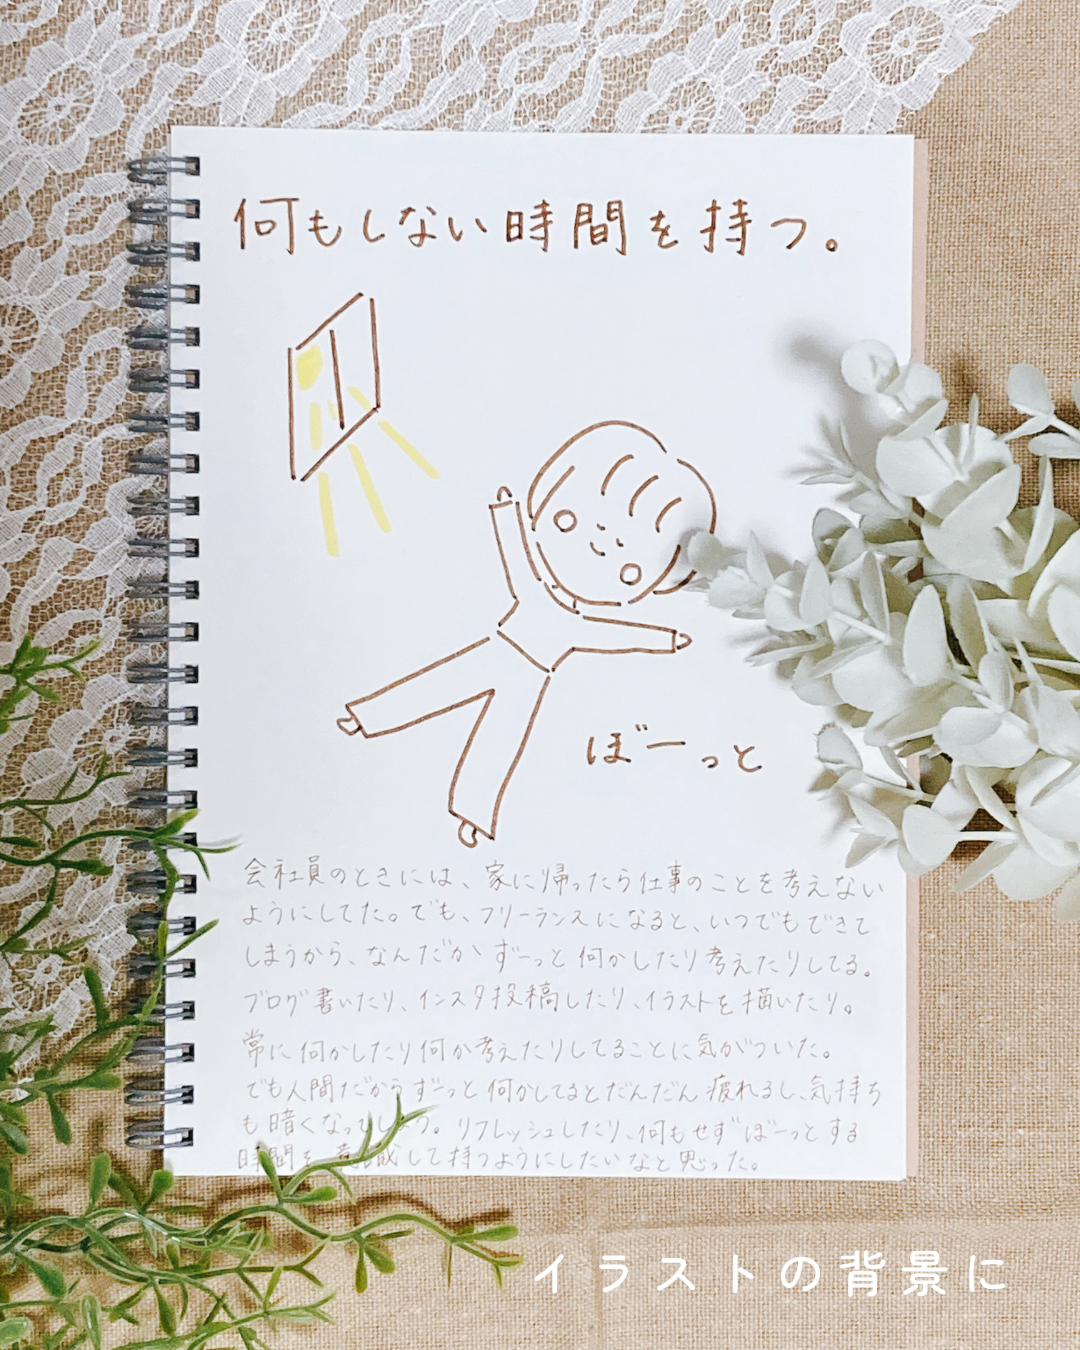 何もしない時間を持つ。
ぼーっと
会社員のときには、家に帰ったら仕事のことを考えない
ようにしてた。でも、フリーランスになると、いつでもできて
しまうから、なんだかずーっと何かしたり考えたりしてる。
ブログ書いたり、インスタ投稿したり、イラストを描いたり。
常に何かしたり何か考えたりしてることに気がついた。
でも人間だからずーっと何かしてるとだんだん疲れるし、気持ち
も暗くなってしまう。リフレッシュしたり、何もせずぼーっとする
時間を意識して持つようにしたいなと思った。
イラストの背景に